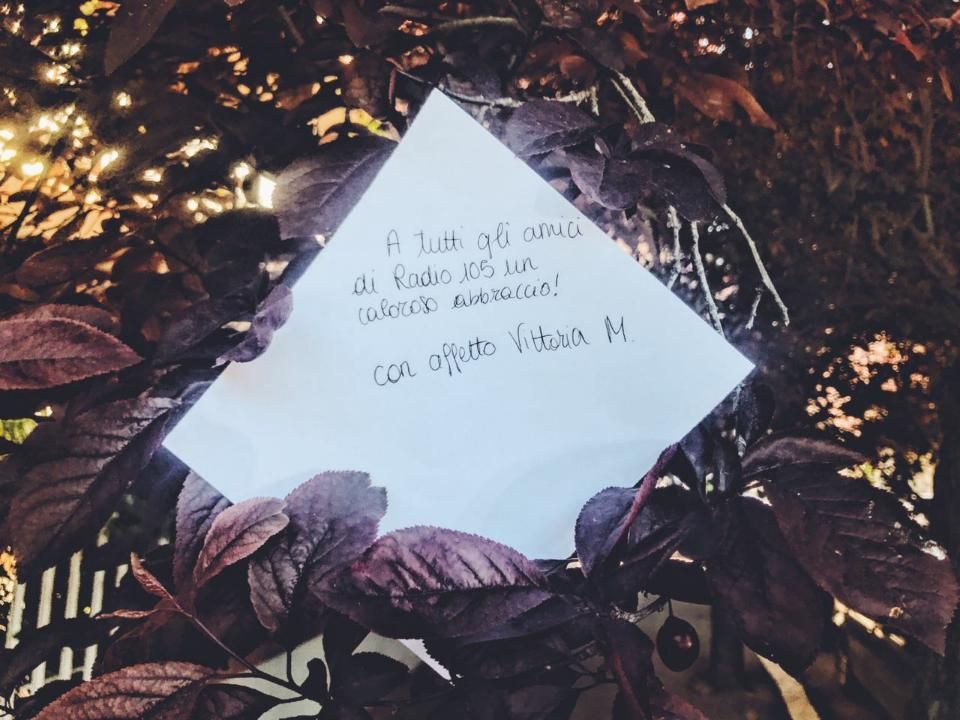 A tutti gli amici
di Radio 105 un
caloroso abbraccio!
con affetto Vittoria M.